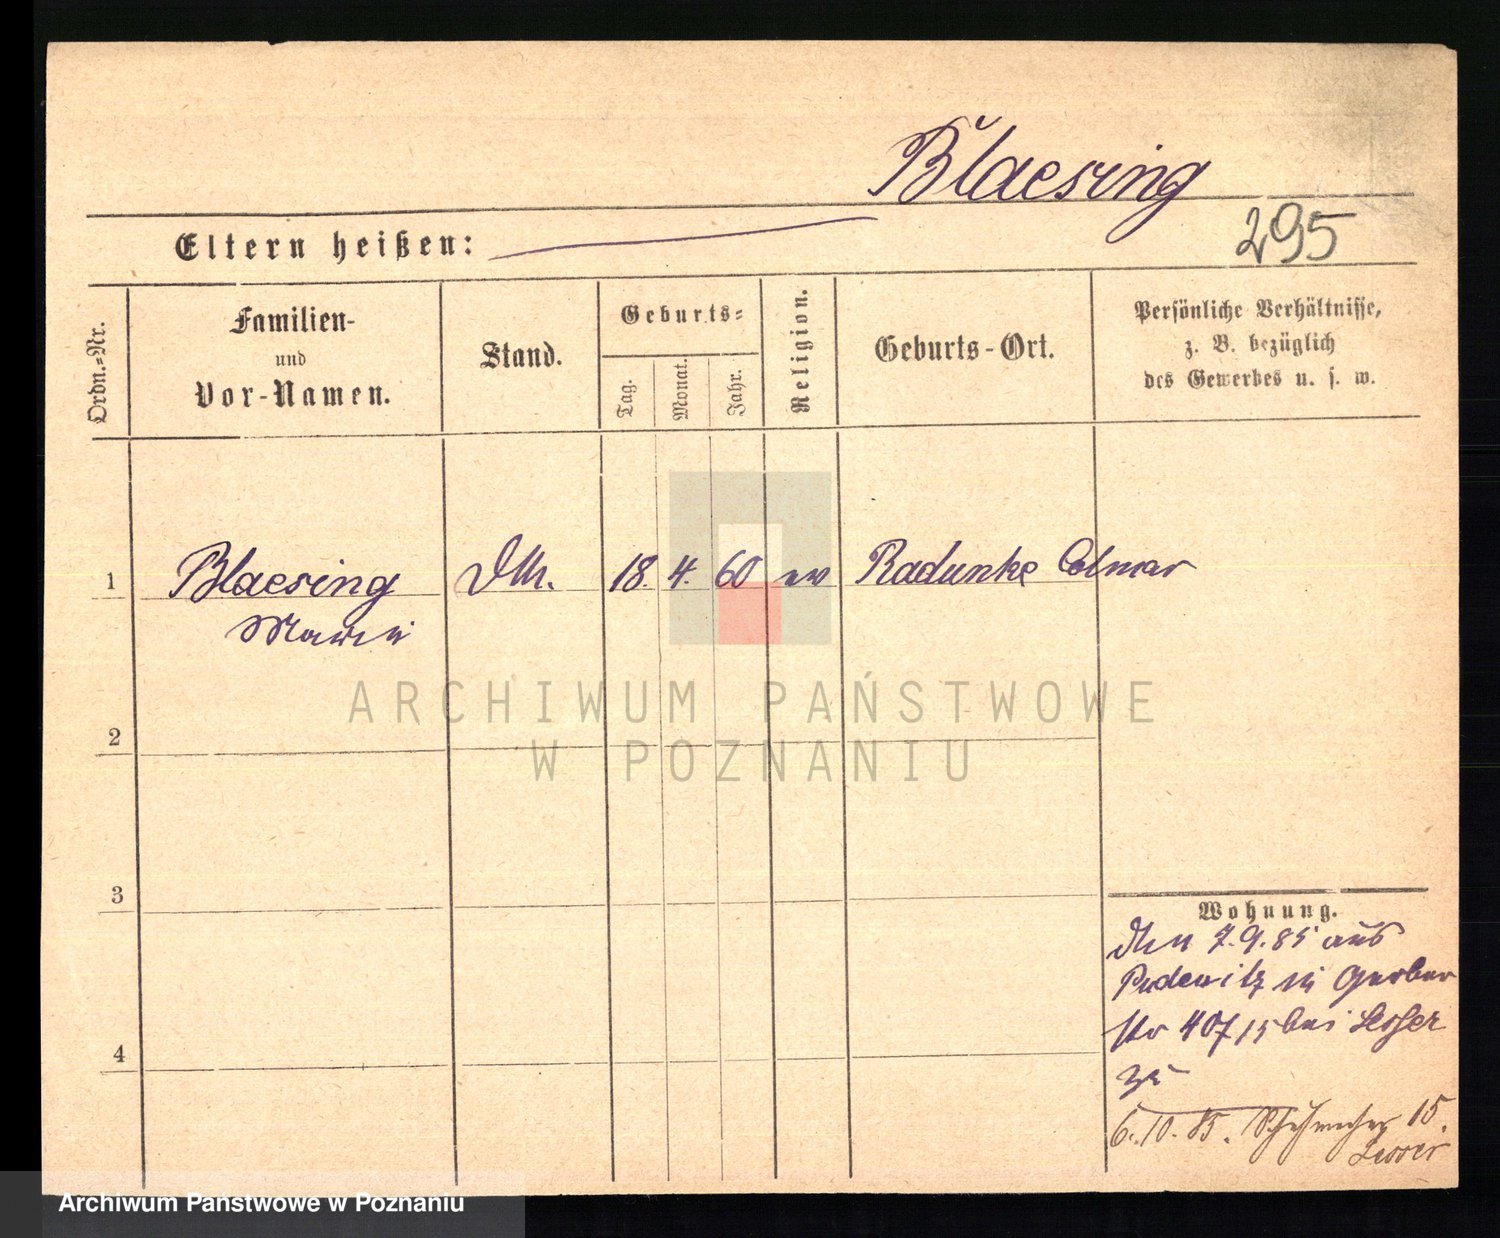 Blaesing
Eltern heißen:
295
Ordn.-Nr.
Familien-
und
Vor-Namen.
Stand.
Geburts-
Tag.
Monat.
Jahr.
Religion.
Geburts-Ort.
Persönliche Verhältnisse,
z. B. bezüglich
des Gewerbes u. s. w.
1 Blaesing 18. 4. 60 ev Radunke Colmar
Marie
2
3
4
Wohnung.
Den 7.9.85 aus
Pudewitz in Gerber
str 40 bei Lesser
zu
6.10.85. Schuhmacher 15.
Lesser
ARCHIWUM PAŃSTWOWE
W POZNANIU
Archiwum Państwowe w Poznaniu